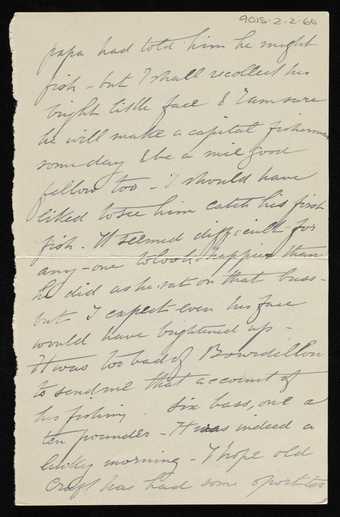 9015-2-2-66
papa had told him he might
fish - but I shall recollect his
bright little face & I am sure
he will make a capital fisherman
some day & be a nice good
fellow too - I should have
liked to see him catch his first
fish. It seemed difficult for
any-one to look happier than
he did as he sat on that bass -
but I expect even his face
would have brightened up -
It was too bad of Bowdillon
to send me that account of
his fishing. Six bass, one a
ten pounder - It was indeed a
lucky morning - I hope old
has had some sport too